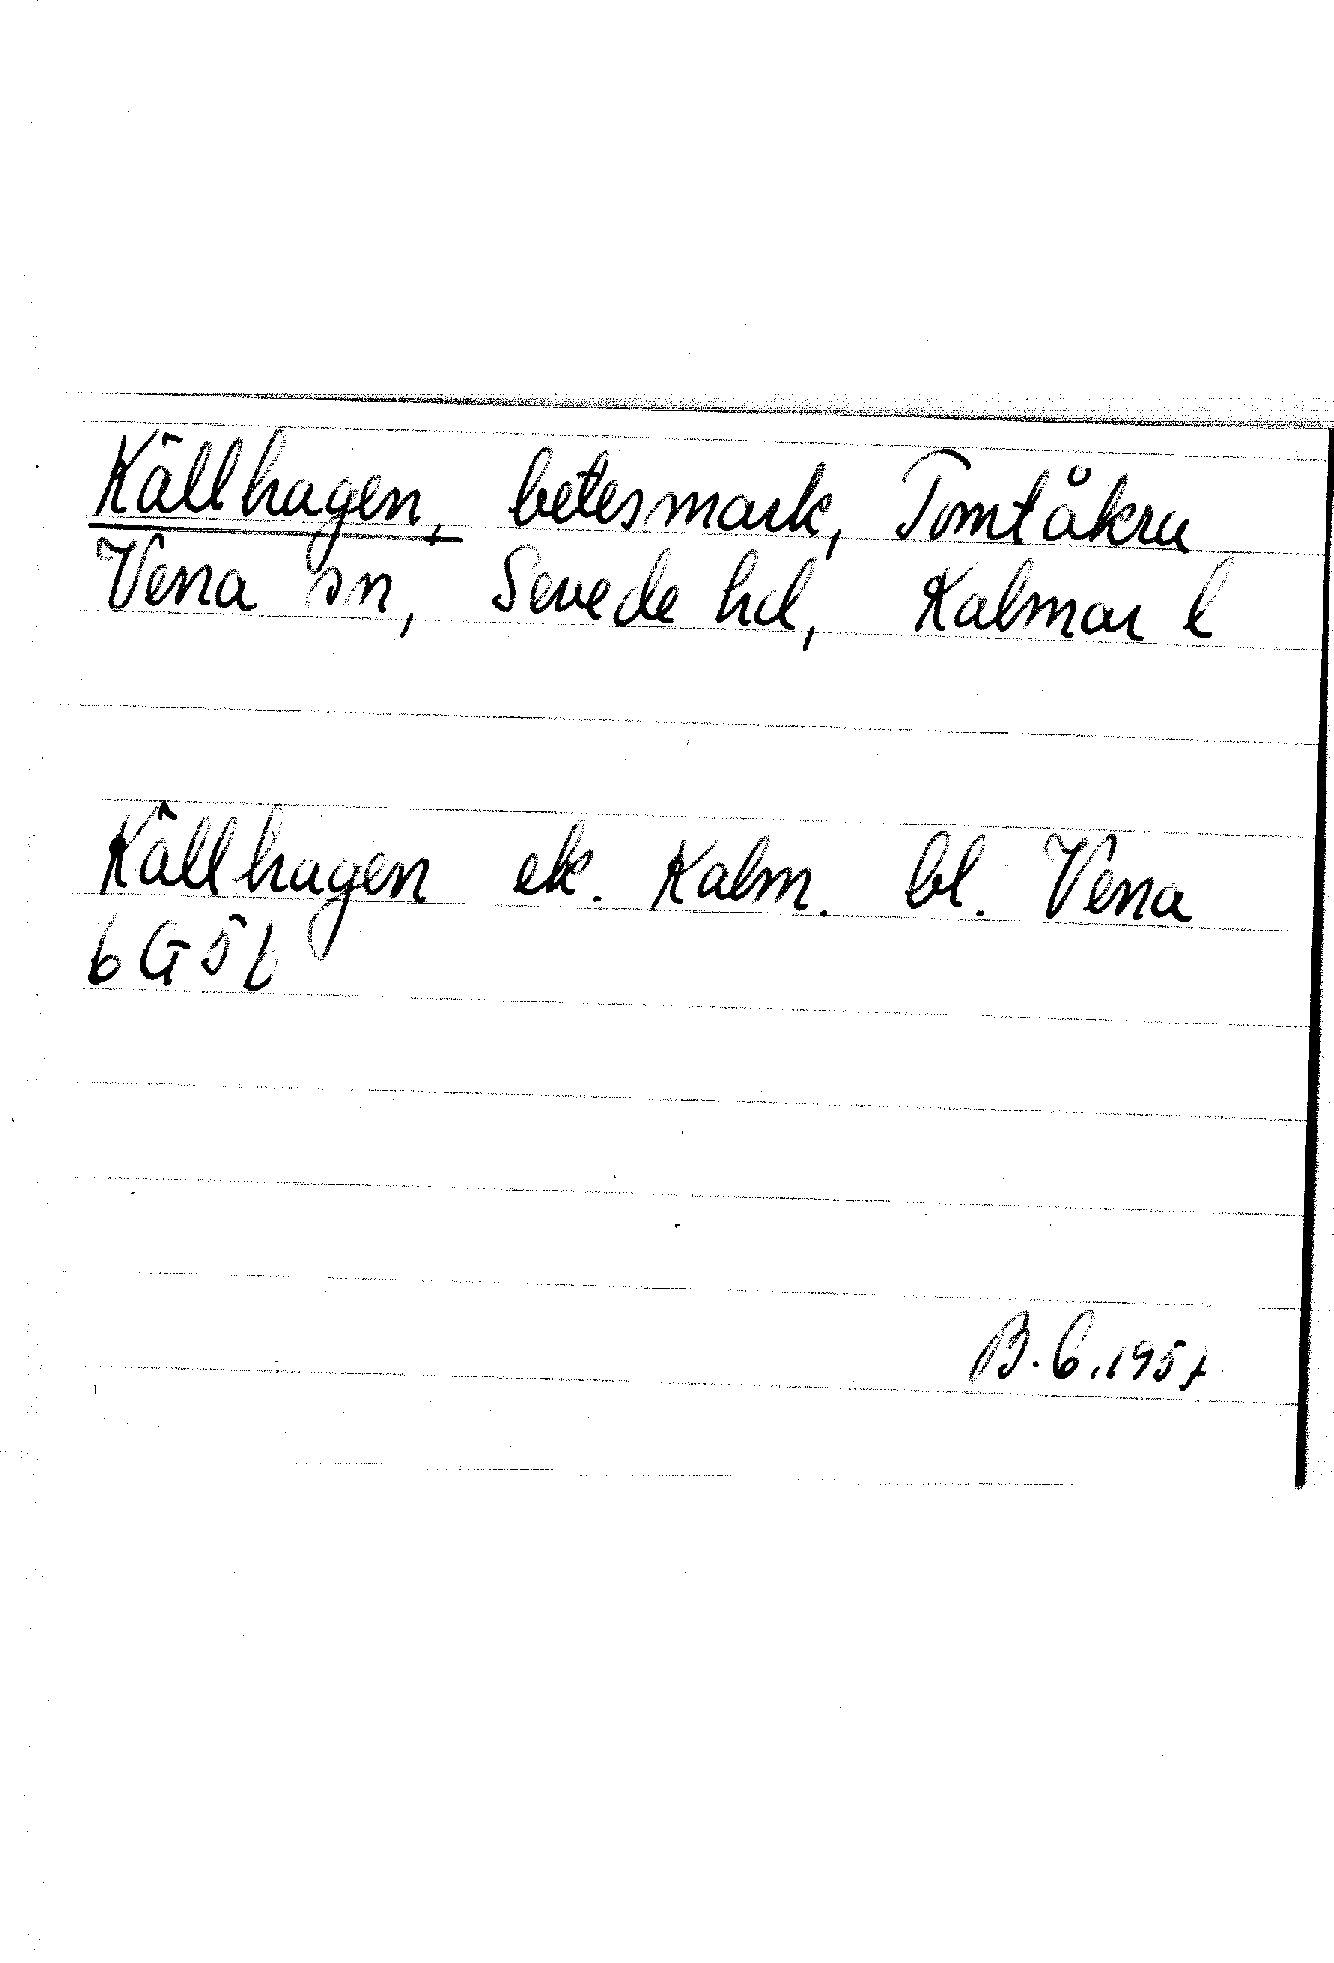 Källhagen, betesmark, Tomtåkra
Vena sn, Sevede hd, Kalmar l
Källhagen ek. Kalm. bl. Vena
6G5b
B. 6.1957